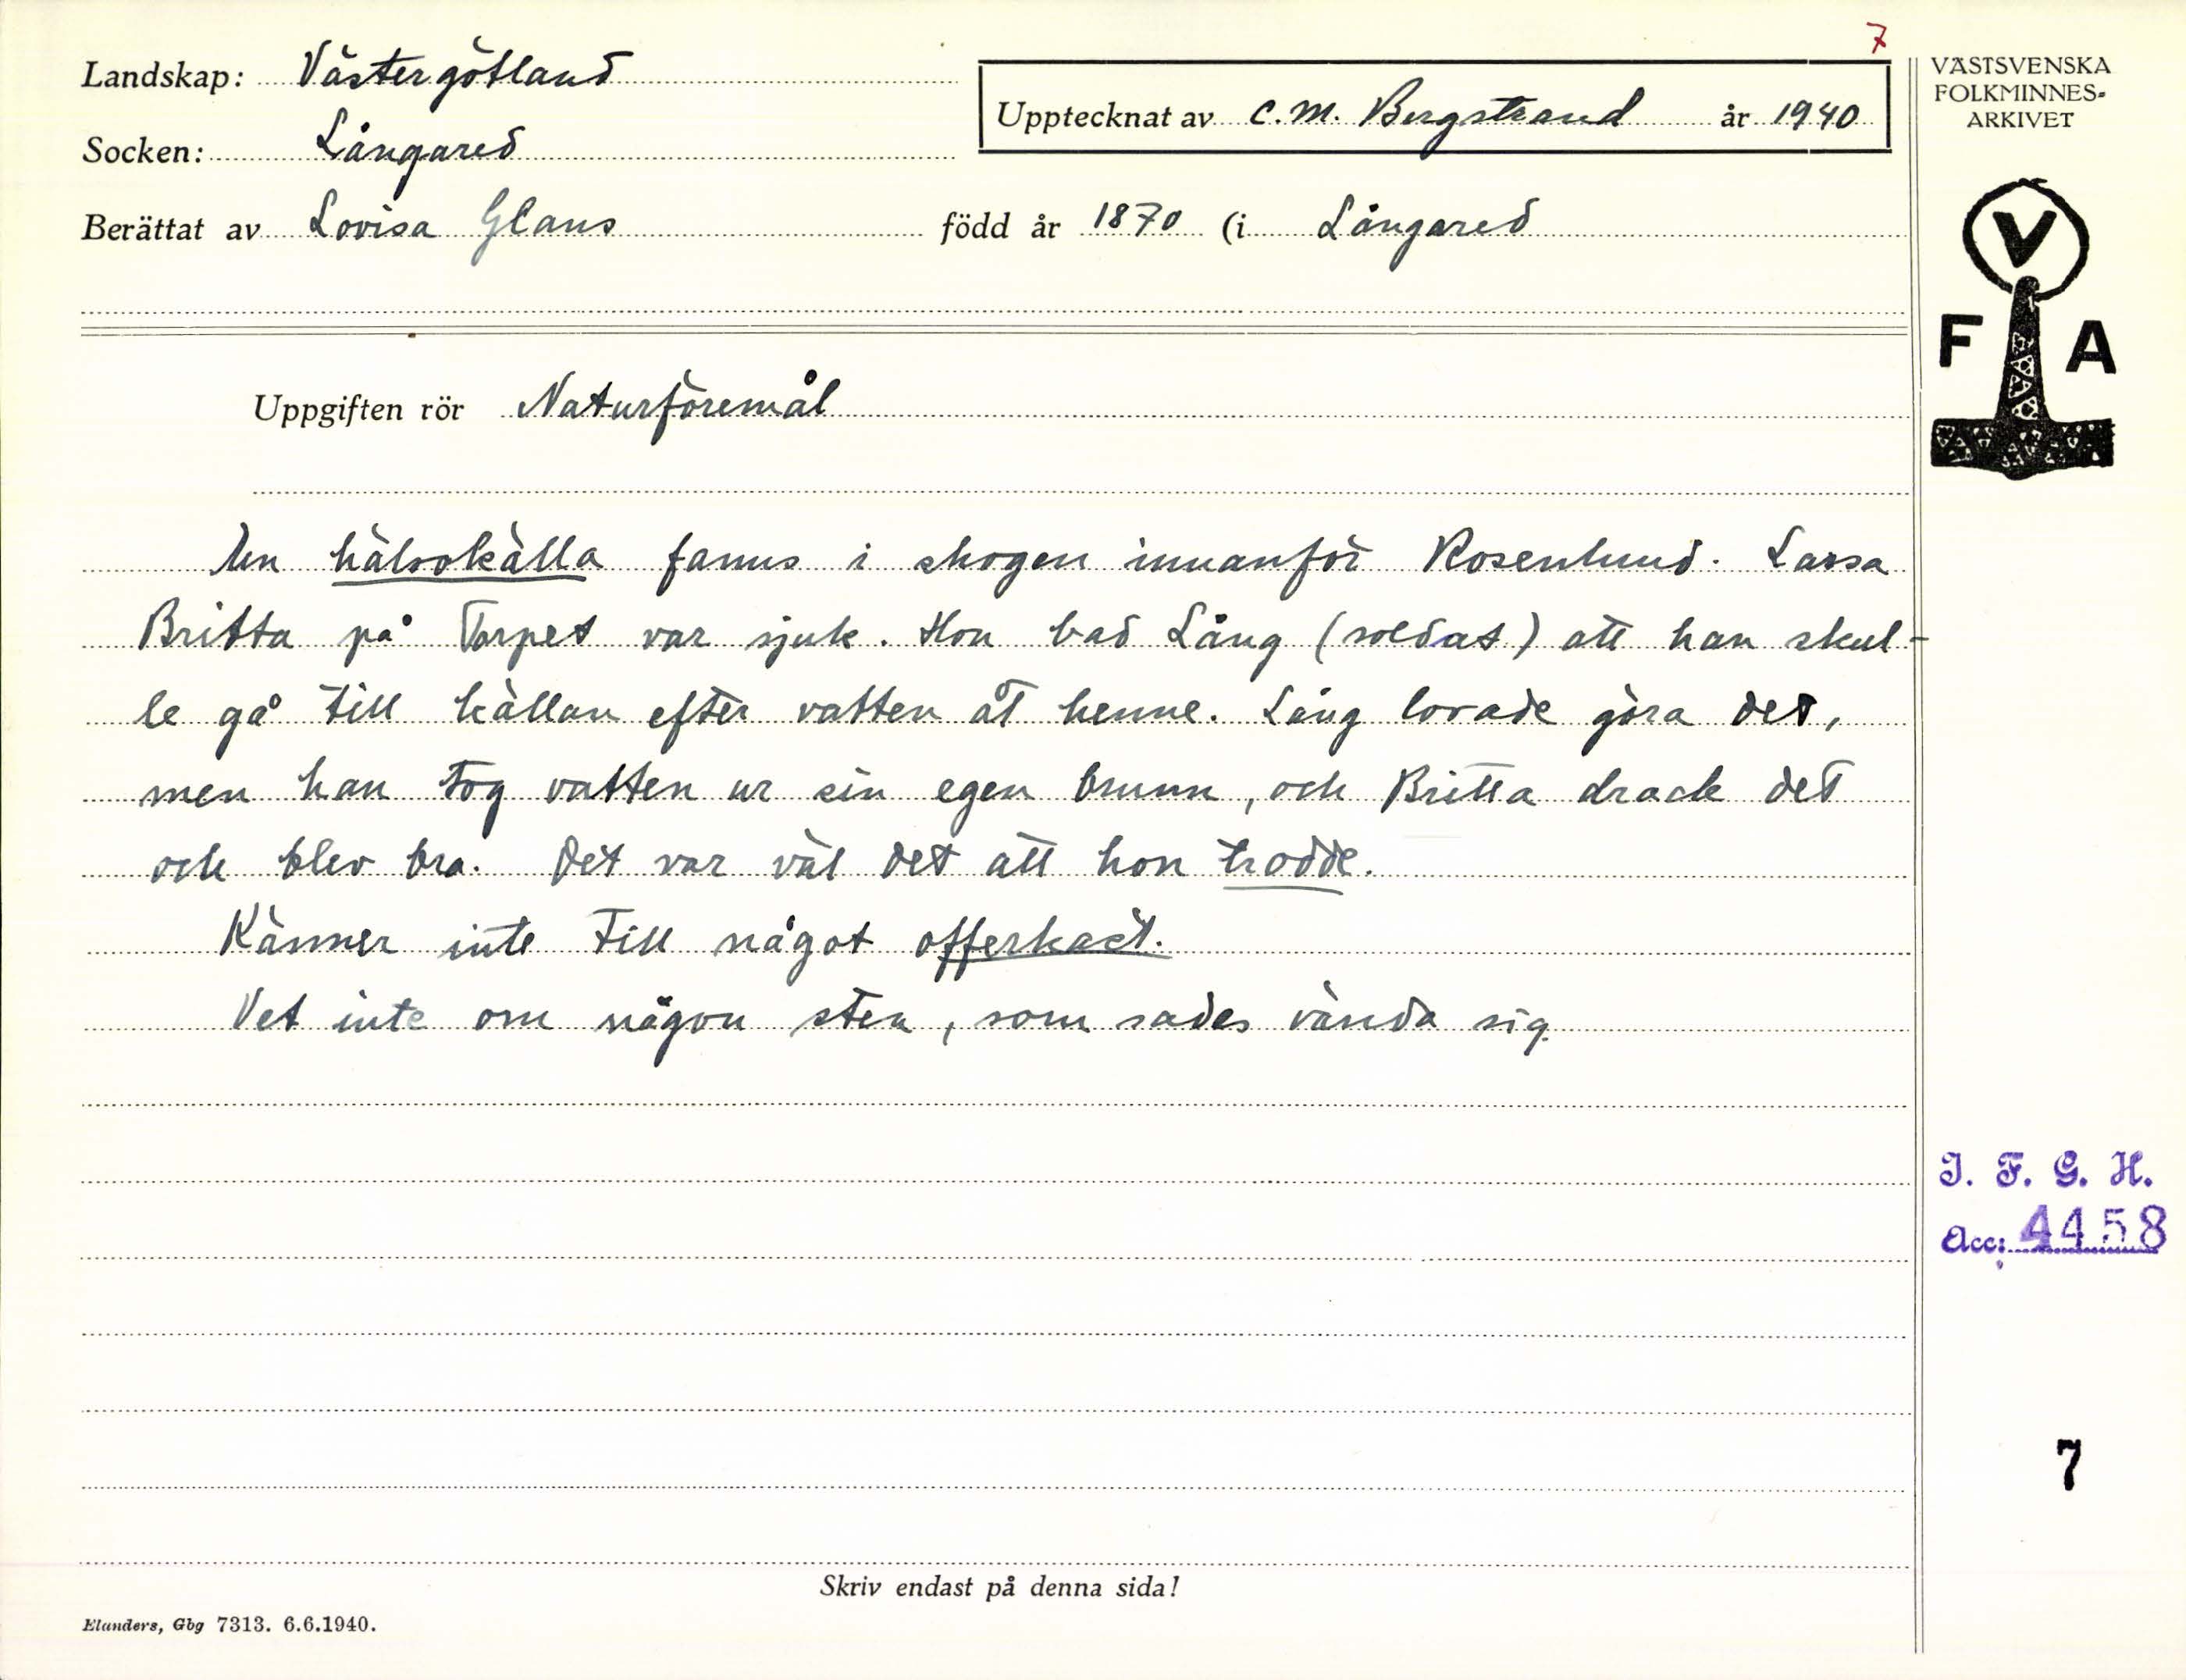 7
Landskap: Västergötland
Upptecknat av C. M. Bergstrand år 1940
Socken: Långared
Berättat av Lovisa Glans född år 1870 (i Långared
VÄSTSVENSKA
FOLKMINNES-
ARKIVET
V
F A
Uppgiften rör Naturföremål
En hälsokälla fanns i skogen innanför Rosenlund. Lassa
Britta på Torpet var sjuk. Hon bad Lång (soldat) att han skul-
le gå till källan efter vatten åt henne. Lång lovade göra det,
men han tog vatten ur sin egen brunn, och Britta drack det
och blev bra. Det var väl det att hon trodde.
Känner inte till något offerkast.
Vet inte om någon sten, som sades vända sig.
I. F. G. H.
Acc: 4458
7
Skriv endast på denna sida!
Elanders, Gbg 7313. 6.6.1940.